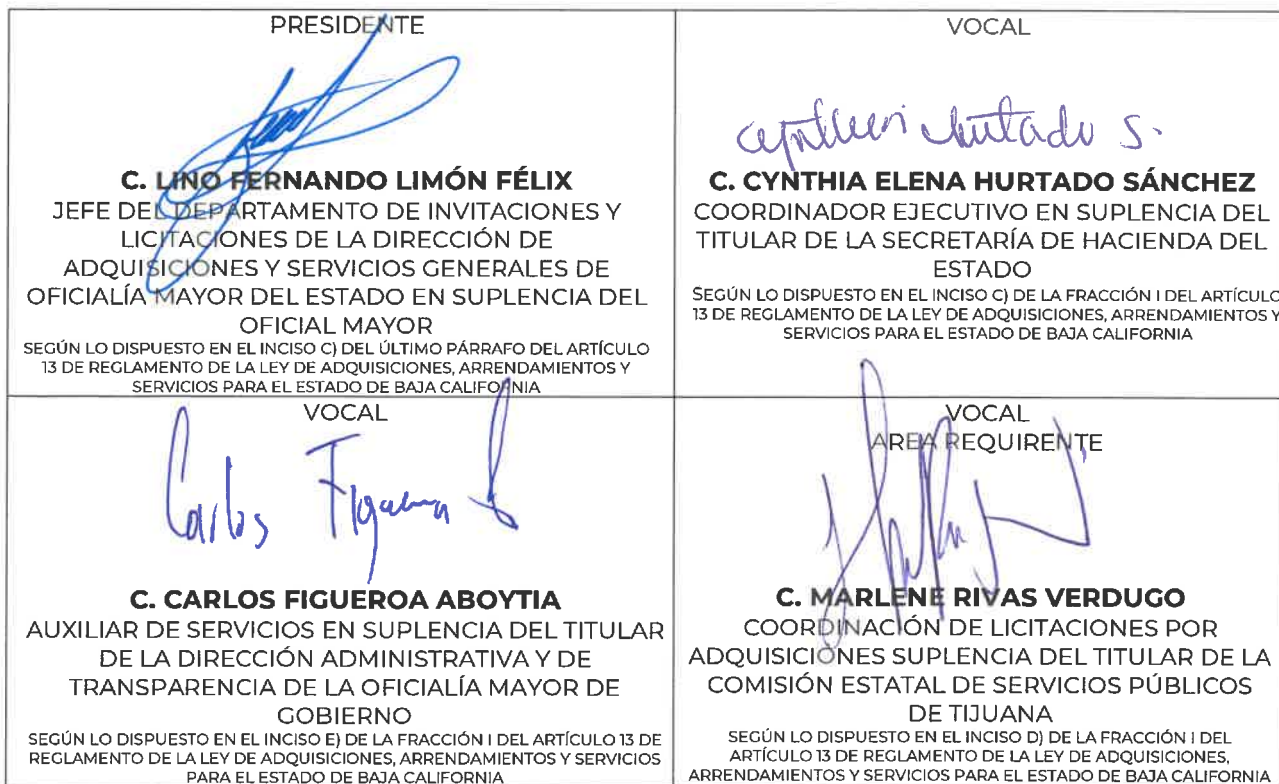 PRESIDENTE
C. LINO FERNANDO LIMÓN FÉLIX
JEFE DEL DEPARTAMENTO DE INVITACIONES Y
LICITACIONES DE LA DIRECCIÓN DE
ADQUISICIONES Y SERVICIOS GENERALES DE
OFICIALÍA MAYOR DEL ESTADO EN SUPLENCIA DEL
OFICIAL MAYOR
SEGÚN LO DISPUESTO EN EL INCISO C) DEL ÚLTIMO PÁRRAFO DEL ARTÍCULO
13 DE REGLAMENTO DE LA LEY DE ADQUISICIONES, ARRENDAMIENTOS Y
SERVICIOS PARA EL ESTADO DE BAJA CALIFORNIA
VOCAL
Hurtado S.
C. CYNTHIA ELENA HURTADO SÁNCHEZ
COORDINADOR EJECUTIVO EN SUPLENCIA DEL
TITULAR DE LA SECRETARÍA DE HACIENDA DEL
ESTADO
SEGÚN LO DISPUESTO EN EL INCISO C) DE LA FRACCIÓN I DEL ARTÍCULO
13 DE REGLAMENTO DE LA LEY DE ADQUISICIONES, ARRENDAMIENTOS Y
SERVICIOS PARA EL ESTADO DE BAJA CALIFORNIA
VOCAL
Carlos Figueroa
C. CARLOS FIGUEROA ABOYTIA
AUXILIAR DE SERVICIOS EN SUPLENCIA DEL TITULAR
DE LA DIRECCIÓN ADMINISTRATIVA Y DE
TRANSPARENCIA DE LA OFICIALÍA MAYOR DE
GOBIERNO
SEGÚN LO DISPUESTO EN EL INCISO E) DE LA FRACCIÓN I DEL ARTÍCULO 13 DE
REGLAMENTO DE LA LEY DE ADQUISICIONES, ARRENDAMIENTOS Y SERVICIOS
PARA EL ESTADO DE BAJA CALIFORNIA
VOCAL
AREA REQUIRENTE
C. MARLENE RIVAS VERDUGO
COORDINACIÓN DE LICITACIONES POR
ADQUISICIONES SUPLENCIA DEL TITULAR DE LA
COMISIÓN ESTATAL DE SERVICIOS PÚBLICOS
DE TIJUANA
SEGÚN LO DISPUESTO EN EL INCISO D) DE LA FRACCIÓN I DEL
ARTÍCULO 13 DE REGLAMENTO DE LA LEY DE ADQUISICIONES,
ARRENDAMIENTOS Y SERVICIOS PARA EL ESTADO DE BAJA CALIFORNIA